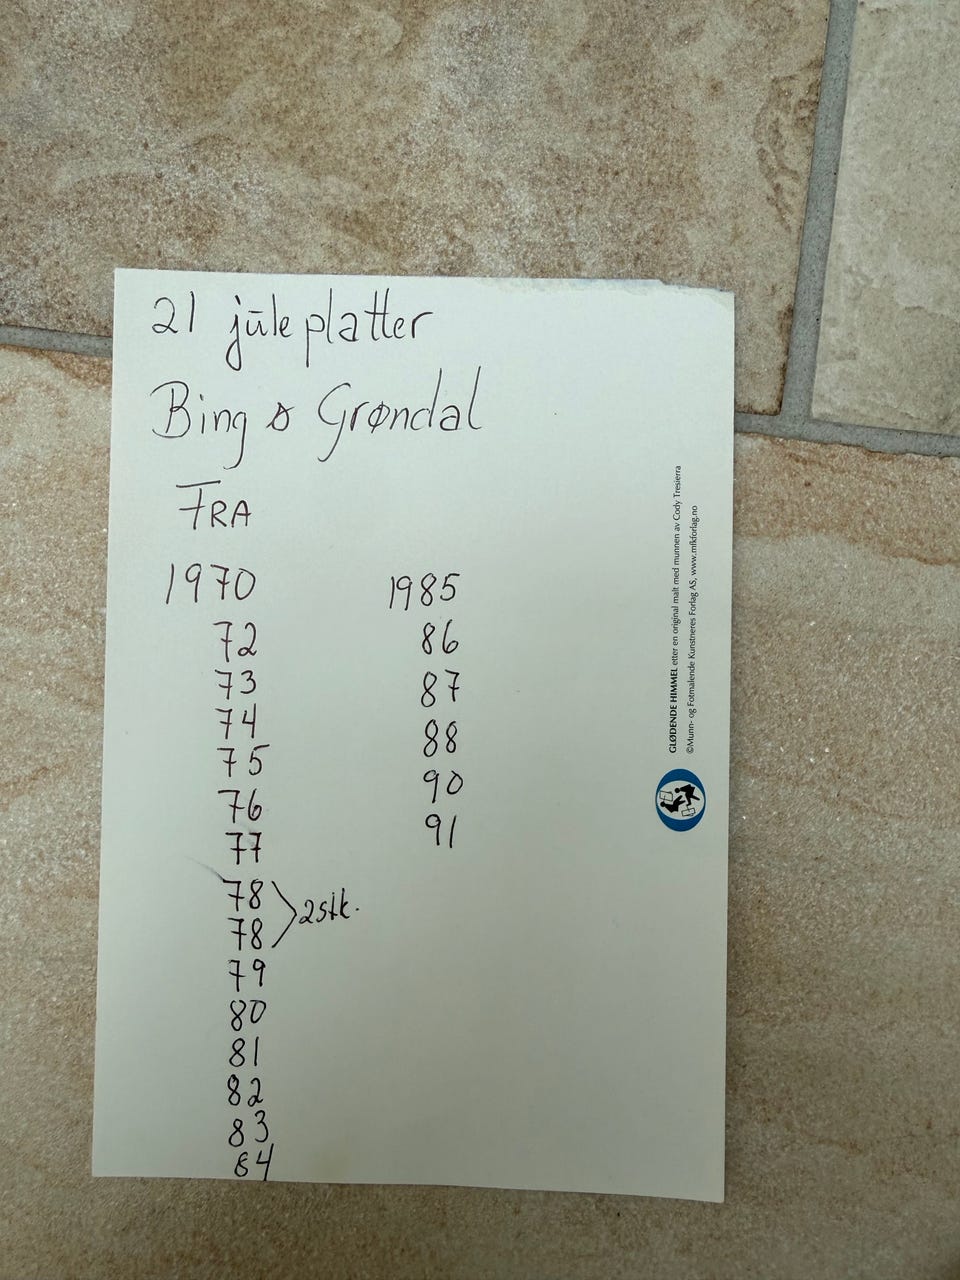 21 juleplatter
Bing & Grøndal
FRA
1970
72
73
74
75
76
77
78
78
2stk.
79
80
81
82
83
84
1985
86
87
88
90
91
GLØDENDE HIMMEL etter en original malt med munnen av Cody Tresierra
©Munn- og Fotmalende Kunstneres Forlag AS, www.mfkforlag.no